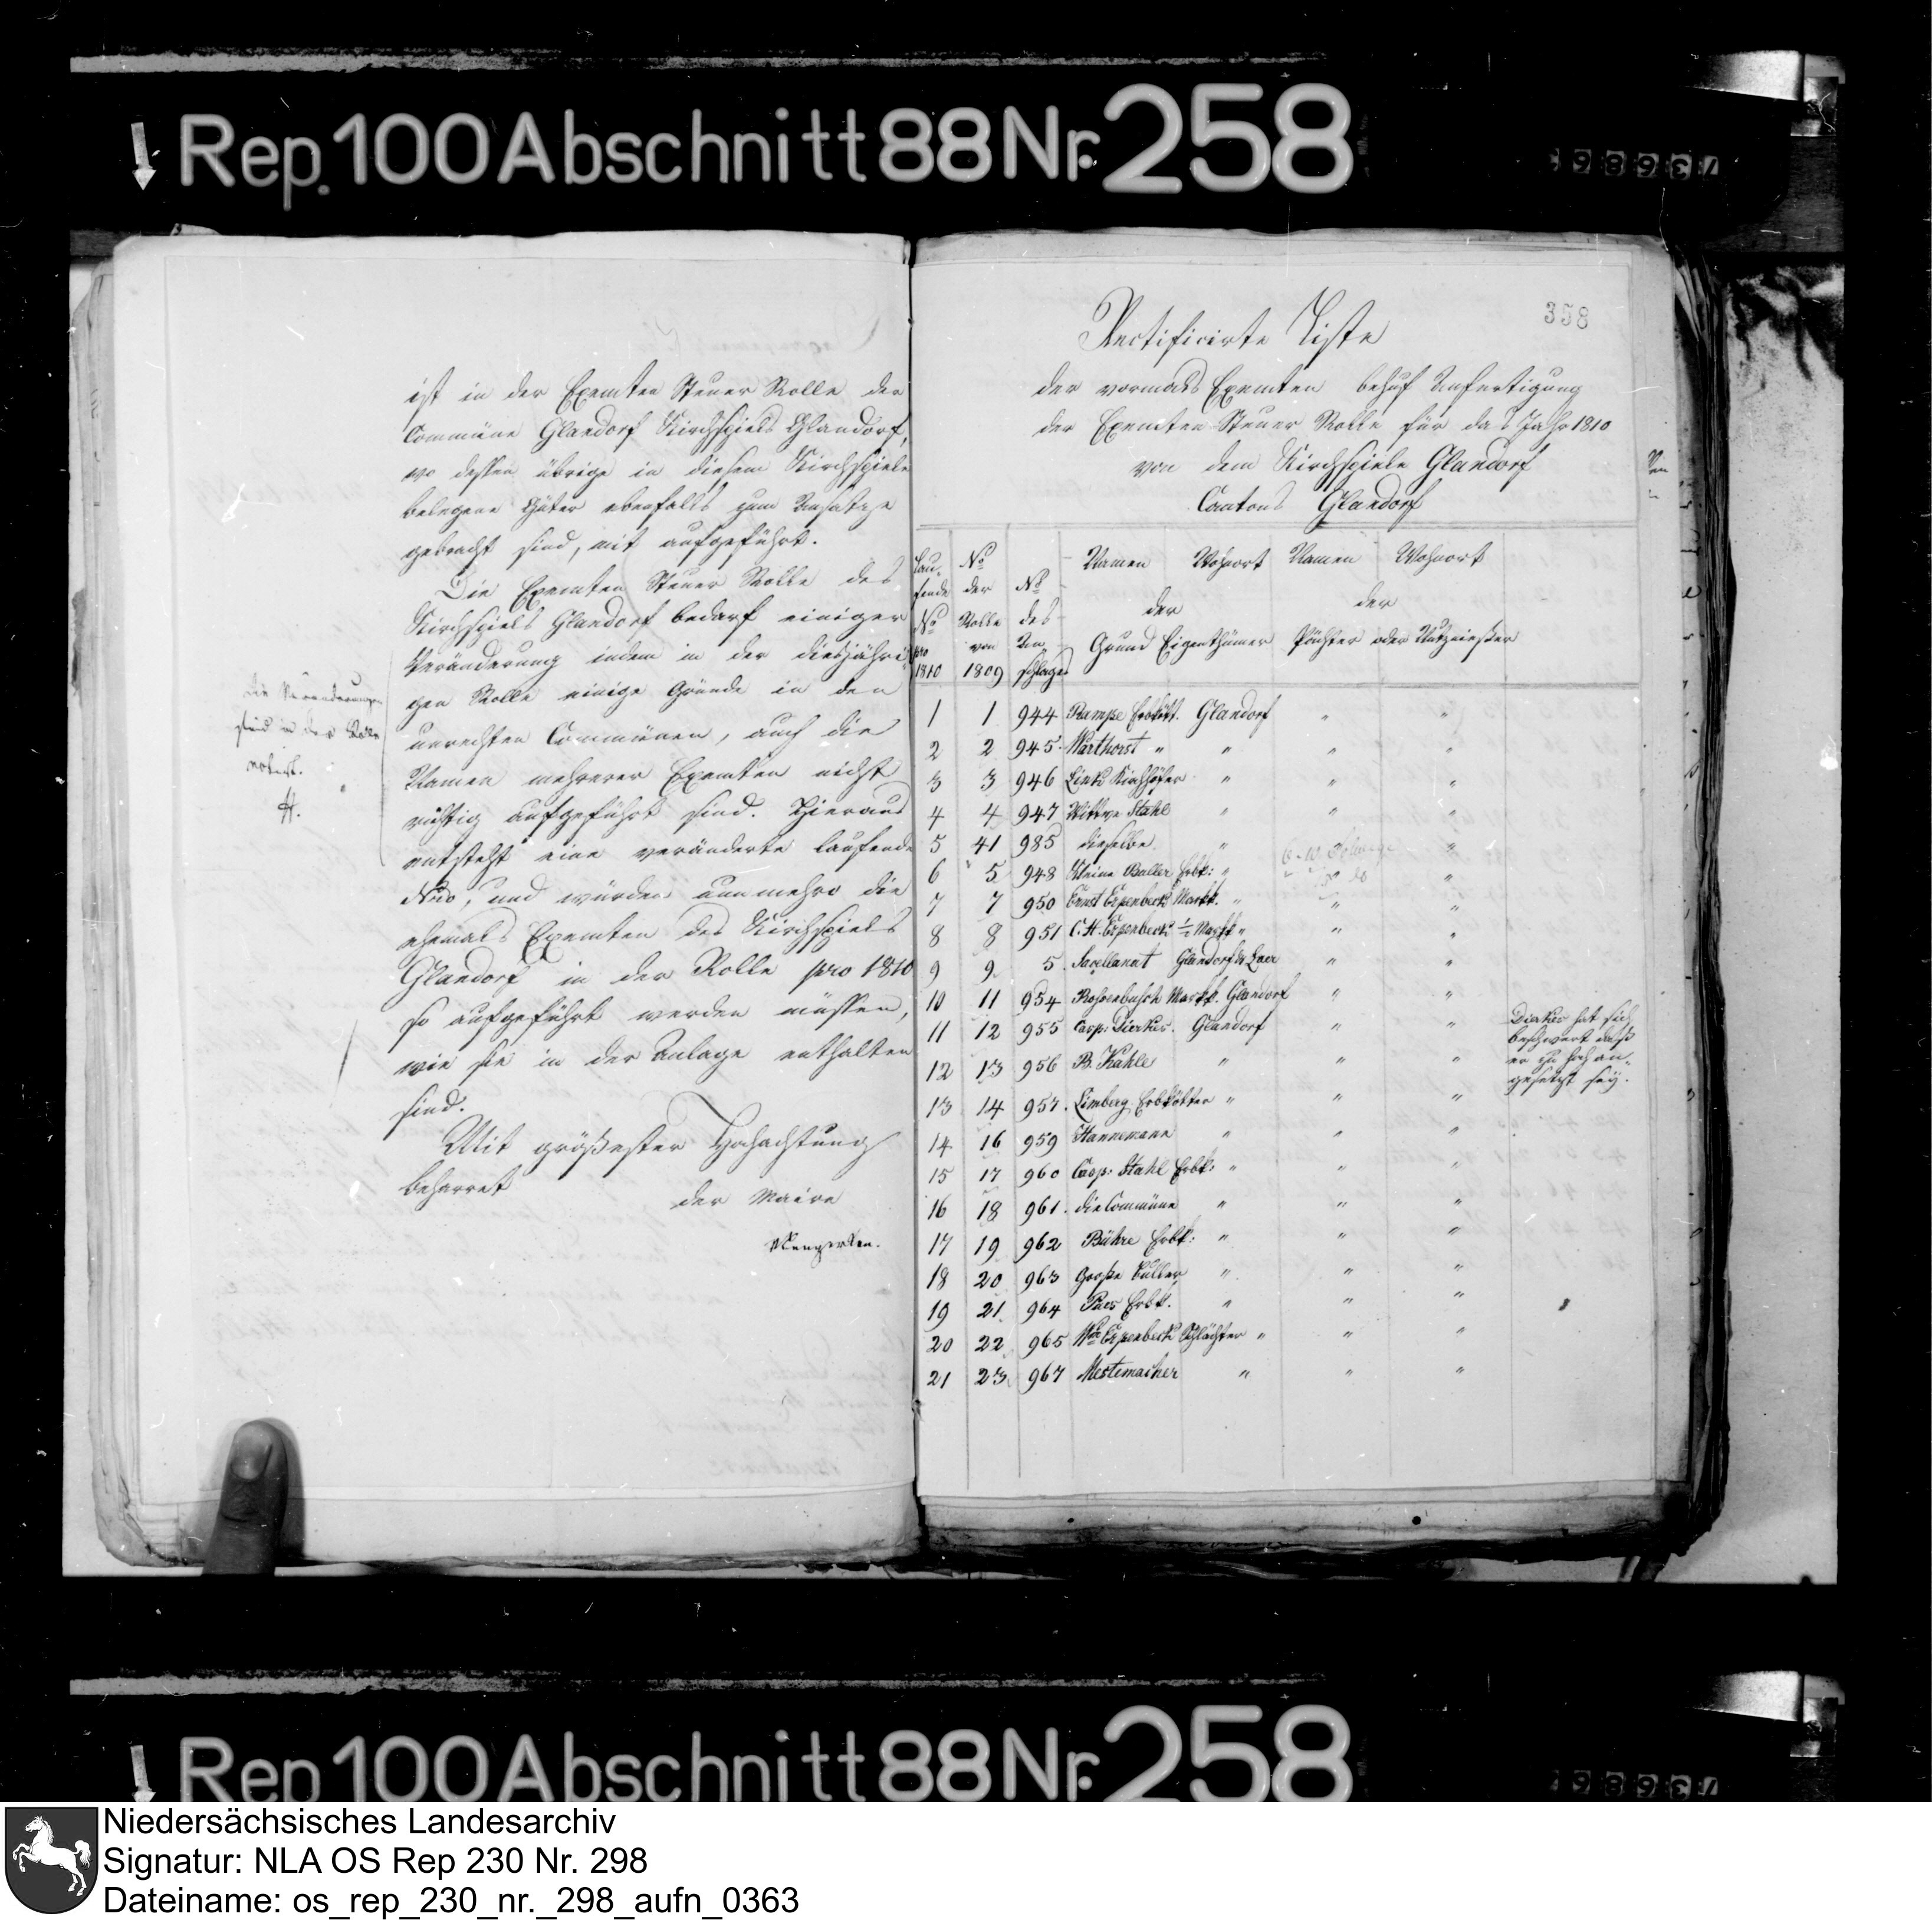 Rep. 100 Abschnitt 88 Nr. 258
73686
ist in der Exemten Steuer Rolle der
Commüne Glandorf Kirchspiels Glandorf,
wo dessen übrige in diesem Kirchspiele
belegene Güter ebenfalls zum Ansatze
gebracht sind, mit aufgeführt.
Die Exemten Steuer Rolle des
Kirchspiels Glandorf bedarf einiger
Veränderung indem in der diesjähri-
gen Rolle einige Gründe in den
unrechten Commünen, auch die
Namen mehrerer Exemten nicht
richtig aufgeführt sind. Hieraus
entsteht eine veränderte laufende
Nro, und würden nunmehro die
ehemals Exemten des Kirchspiels
Glandorf in der Rolle pro 1810
so aufgeführt werden müssen,
wie sie in der Anlage enthalten
sind.
Mit größester Hochachtung
beharret
der Maire
Die Veränderungen
sind in der Rolle
notirt.
H.
358
Rectificirte Liste
der vormals Exemten behuf Anfertigung
der Exemten Steuer Rolle für das Jahr 1810
von dem Kirchspiele Glandorf
Cantons Glandorf
Lau- No Namen Wohnort Namen Wohnort
fende der No
No Rolle des der der
pro von An- Grund Eigenthümer Pächter oder Nutznießer
1810 1809 schlages
1 1 944 Rampe Erbkött. Glandorf " "
2 2 945 Warthorst " " " "
3 3 946 Kirchhöfer " " "
4 4 947 Wittwe Stahl " " "
5 41 985 dieselbe. " "
6 5 948 Kleine Baller Erbk: " "
7 7 950 Ernst Erpenbeck Markk. " " "
8 8 951 C. H. Erpenbeck ½ Markk " " "
9 9 5. Sacellanat Glandorf & Laer " "
10 11 954 Rohrenbusch Markk. Glandorf " "
11 12 955 Casp: Dierkes. Glandorf " " Dierkes hat sich
beschwert daß
er zu hoch an-
gesetzt sey.
12 13 956 B. Kahle " " "
13 14 957. Limberg Erbkötter " " "
14 16 959 Hannemann " " "
15 17 960 Casp: Stahl Erbk: " " "
16 18 961. die Commüne " " "
17 19 962 Bühre Erbk: " " "
18 20 963 Große Baller " " "
19 21 964 Pues Erbk. " " "
20 22 965 Erpenbeck Schlächter " " "
21 23 967 Mestemacher " " "
Rep. 100 Abschnitt 88 Nr. 258
73686
Niedersächsisches Landesarchiv
Signatur: NLA OS Rep 230 Nr. 298
Dateiname: os_rep_230_nr._298_aufn_0363